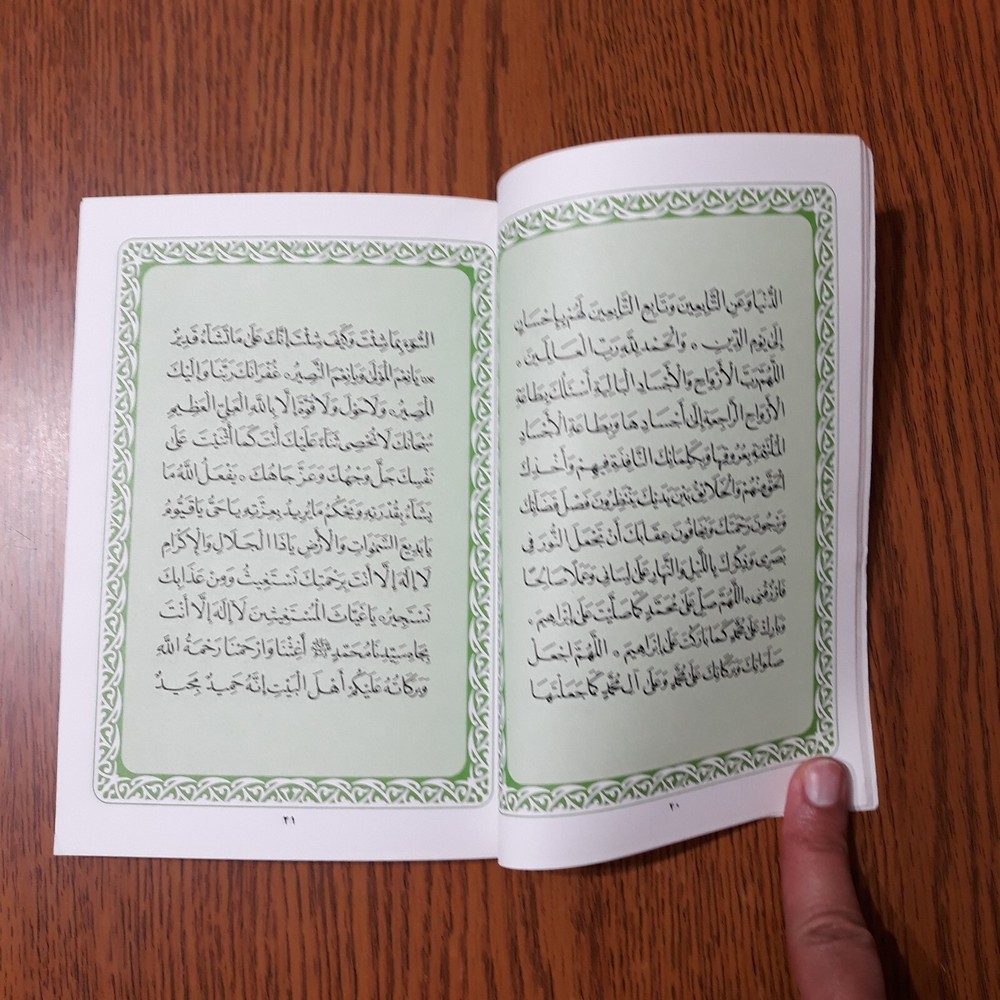 الدُّنْيَا وَعَنِ التَّابِعِينَ وَتَابِعِ التَّابِعِينَ لَهُمْ بِإِحْسَانٍ
إِلَى يَوْمِ الدِّينِ ۞ وَالْحَمْدُ لِلّٰهِ رَبِّ الْعَالَمِينَ ۞
اللّٰهُمَّ رَبَّ الْأَرْوَاحِ وَالْأَجْسَادِ الْبَالِيَةِ أَسْئَلُكَ بِطَاعَةِ
الْأَرْوَاحِ الرَّاجِعَةِ إِلَى أَجْسَادِهَا وَبِطَاعَةِ الْأَجْسَادِ
الْمُلْتَئِمَةِ بِعُرُوقِهَا وَبِكَلِمَاتِكَ النَّافِذَةِ فِيهِمْ وَأَخْذِكَ
الْحَقَّ مِنْهُمْ وَالْخَلَائِقُ بَيْنَ يَدَيْكَ يَنْتَظِرُونَ فَصْلَ قَضَائِكَ
وَيَرْجُونَ رَحْمَتَكَ وَيَخَافُونَ عِقَابَكَ أَنْ تَجْعَلَ النُّورَ فِى
بَصَرِى وَذِكْرَكَ بِاللَّيْلِ وَالنَّهَارِ عَلَى لِسَانِى وَعَمَلًا صَالِحًا
فَارْزُقْنِى ۞ اللّٰهُمَّ صَلِّ عَلَى مُحَمَّدٍ كَمَا صَلَّيْتَ عَلَى إِبْرَاهِيمَ ۞
وَبَارِكْ عَلَى مُحَمَّدٍ كَمَا بَارَكْتَ عَلَى إِبْرَاهِيمَ ۞ اللّٰهُمَّ اجْعَلْ
صَلَوَاتِكَ وَبَرَكَاتِكَ عَلَى مُحَمَّدٍ وَعَلَى آلِ مُحَمَّدٍ كَمَا جَعَلْتَهَا
٢٠
السُّوءِ بِمَا شِئْتَ وَكَيْفَ شِئْتَ إِنَّكَ عَلَى مَا تَشَآءُ قَدِيرٌ
يَا نِعْمَ الْمَوْلَى وَيَا نِعْمَ النَّصِيرُ ۞ غُفْرَانَكَ رَبَّنَا وَإِلَيْكَ
الْمَصِيرُ ۞ وَلَا حَوْلَ وَلَا قُوَّةَ إِلَّا بِاللّٰهِ الْعَلِىِّ الْعَظِيمِ
سُبْحَانَكَ لَا نُحْصِى ثَنَآءً عَلَيْكَ أَنْتَ كَمَا أَثْنَيْتَ عَلَى
نَفْسِكَ جَلَّ وَجْهُكَ وَعَزَّ جَاهُكَ ۞ يَفْعَلُ اللّٰهُ مَا
يَشَآءُ بِقُدْرَتِهِ وَيَحْكُمُ مَا يُرِيدُ بِعِزَّتِهِ يَا حَىُّ يَا قَيُّومُ
يَا بَدِيعَ السَّمٰوَاتِ وَالْأَرْضِ يَا ذَا الْجَلَالِ وَالْإِكْرَامِ
لَا إِلٰهَ إِلَّا أَنْتَ بِرَحْمَتِكَ نَسْتَغِيثُ وَمِنْ عَذَابِكَ
نَسْتَجِيرُ ۞ يَا غِيَاثَ الْمُسْتَغِيثِينَ لَا إِلٰهَ إِلَّا أَنْتَ
بِجَاهِ سَيِّدِنَا مُحَمَّدٍ ﷺ أَغِثْنَا وَارْحَمْنَا رَحْمَةُ اللّٰهِ
وَبَرَكَاتُهُ عَلَيْكُمْ أَهْلَ الْبَيْتِ إِنَّهُ حَمِيدٌ مَجِيدٌ